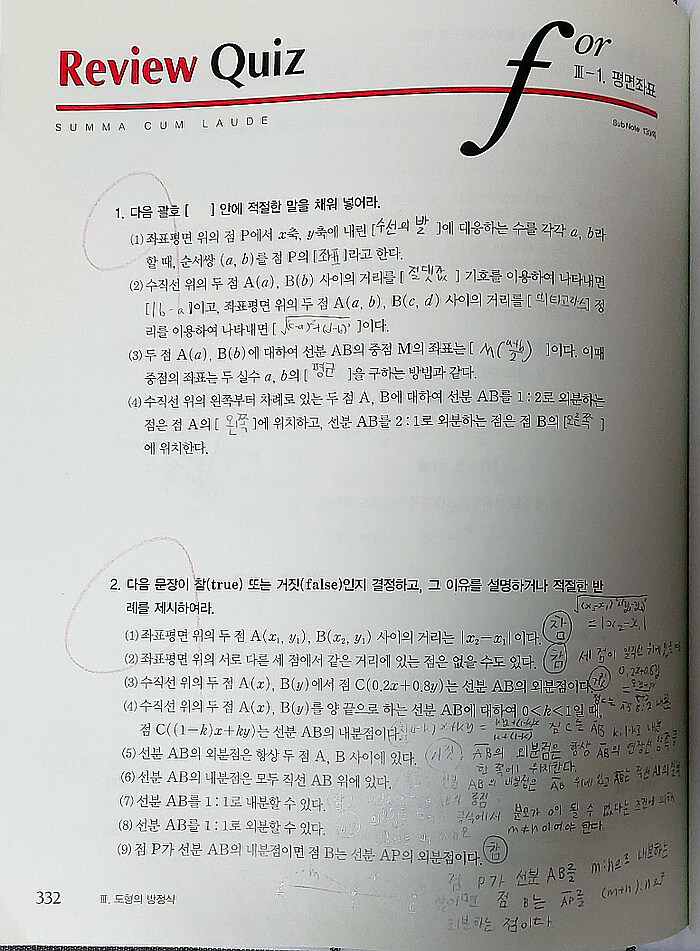 Review Quiz
for
Ⅲ-1. 평면좌표
SUMMA CUM LAUDE
SubNote
1. 다음 괄호 [ ] 안에 적절한 말을 채워 넣어라.
(1) 좌표평면 위의 점 P에서 x축, y축에 내린 [수선의 발]에 대응하는 수를 각각 a, b라
할 때, 순서쌍 (a, b)를 점 P의 [좌표]라고 한다.
(2) 수직선 위의 두 점 A(a), B(b) 사이의 거리를 [절댓값] 기호를 이용하여 나타내면
[|b-a|]이고, 좌표평면 위의 두 점 A(a, b), B(c, d) 사이의 거리를 [피타고라스] 정
리를 이용하여 나타내면 [√(c-a)²+(d-b)²]이다.
(3) 두 점 A(a), B(b)에 대하여 선분 AB의 중점 M의 좌표는 [M(a+b/2)]이다. 이때
중점의 좌표는 두 실수 a, b의 [평균]을 구하는 방법과 같다.
(4) 수직선 위의 왼쪽부터 차례로 있는 두 점 A, B에 대하여 선분 AB를 1 : 2로 외분하는
점은 점 A의 [왼쪽]에 위치하고, 선분 AB를 2 : 1로 외분하는 점은 점 B의 [오른쪽]
에 위치한다.
2. 다음 문장이 참(true) 또는 거짓(false)인지 결정하고, 그 이유를 설명하거나 적절한 반
례를 제시하여라.
√(x₂-x₁)²+(y₁-y₁)²
(1) 좌표평면 위의 두 점 A(x₁, y₁), B(x₂, y₁) 사이의 거리는 |x₂-x₁|이다. 참 =|x₂-x₁|
(2) 좌표평면 위의 서로 다른 세 점에서 같은 거리에 있는 점은 없을 수도 있다. 참 세 점이 일직선 위에
(3) 수직선 위의 두 점 A(x), B(y)에서 점 C(0.2x+0.8y)는 선분 AB의 외분점이다. 0.2x+0.8y
(4) 수직선 위의 두 점 A(x), B(y)를 양 끝으로 하는 선분 AB에 대하여 0<k<1일 때,
점 C((1-k)x+ky)는 선분 AB의 내분점이다. 점 C는 AB k:1-k로 내분
(5) 선분 AB의 외분점은 항상 두 점 A, B 사이에 있다. 거짓 AB의 외분점은 항상 AB의 연장선
한 쪽에 위치한다.
(6) 선분 AB의 내분점은 모두 직선 AB 위에 있다. AB의 내분점은 AB 위에 있고 AB는 직선 AB의 일부
(7) 선분 AB를 1 : 1로 내분할 수 있다. 중점
(8) 선분 AB를 1 : 1로 외분할 수 있다. 공식에서 분모가 0이 될 수 없다는 조건에 의해
m≠n이어야 한다.
(9) 점 P가 선분 AB의 내분점이면 점 B는 선분 AP의 외분점이다. 참
점 P가 선분 AB를 m:n으로 내분하는
점이면 점 B는 AP를 (m+n):n으로
외분하는 점이다.
m
332
Ⅲ. 도형의 방정식